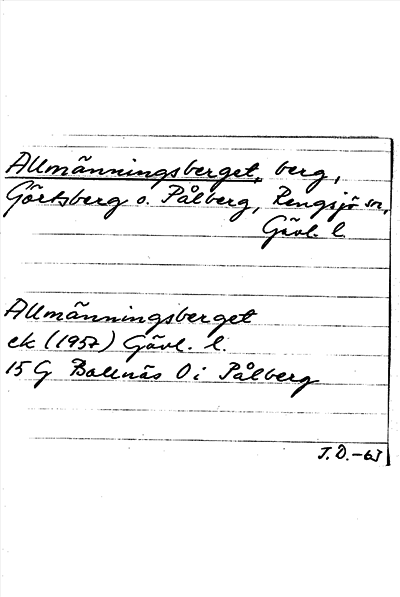 Allmänningsberget, berg,
Görtsberg o. Pålberg, Rengsjö sn,
Gävl. l.
Allmänningsberget
ek (1957) Gävl. l.
15 G Bollnäs 0 i Pålberg
J. D. -63